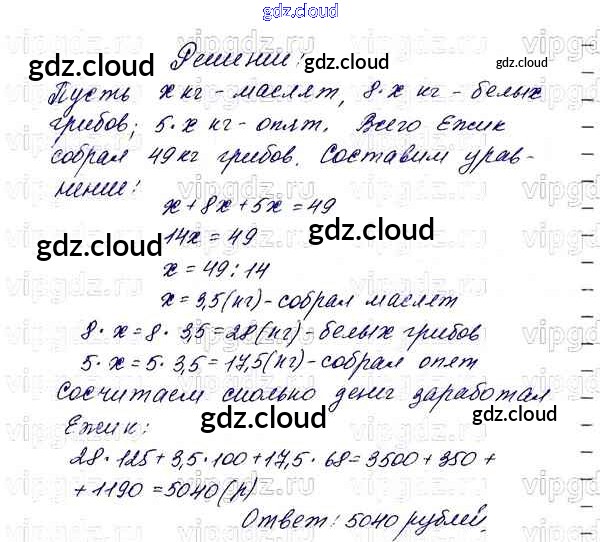 gdz.cloud
Решение:
gdz.cloud
gdz.cloud
gdz.cloud
Пусть x кг - маслят, 8·x кг - белых
грибов; 5·x кг - опят. Всего Ежик
собрал 49 кг грибов. Составим урав-
нение:
x + 8x + 5x = 49
14x = 49
gdz.cloud
gdz.cloud
x = 49 : 14
x = 3,5 (кг) - собрал маслят
8·x = 8·3,5 = 28 (кг) - белых грибов
5·x = 5·3,5 = 17,5 (кг) - собрал опят
Сосчитаем сколько денег заработал
gdz.cloud
gdz.cloud
Ежик:
28·125 + 3,5·100 + 17,5·68 = 3500 + 350 +
+ 1190 = 5040 (р)
Ответ: 5040 рублей.